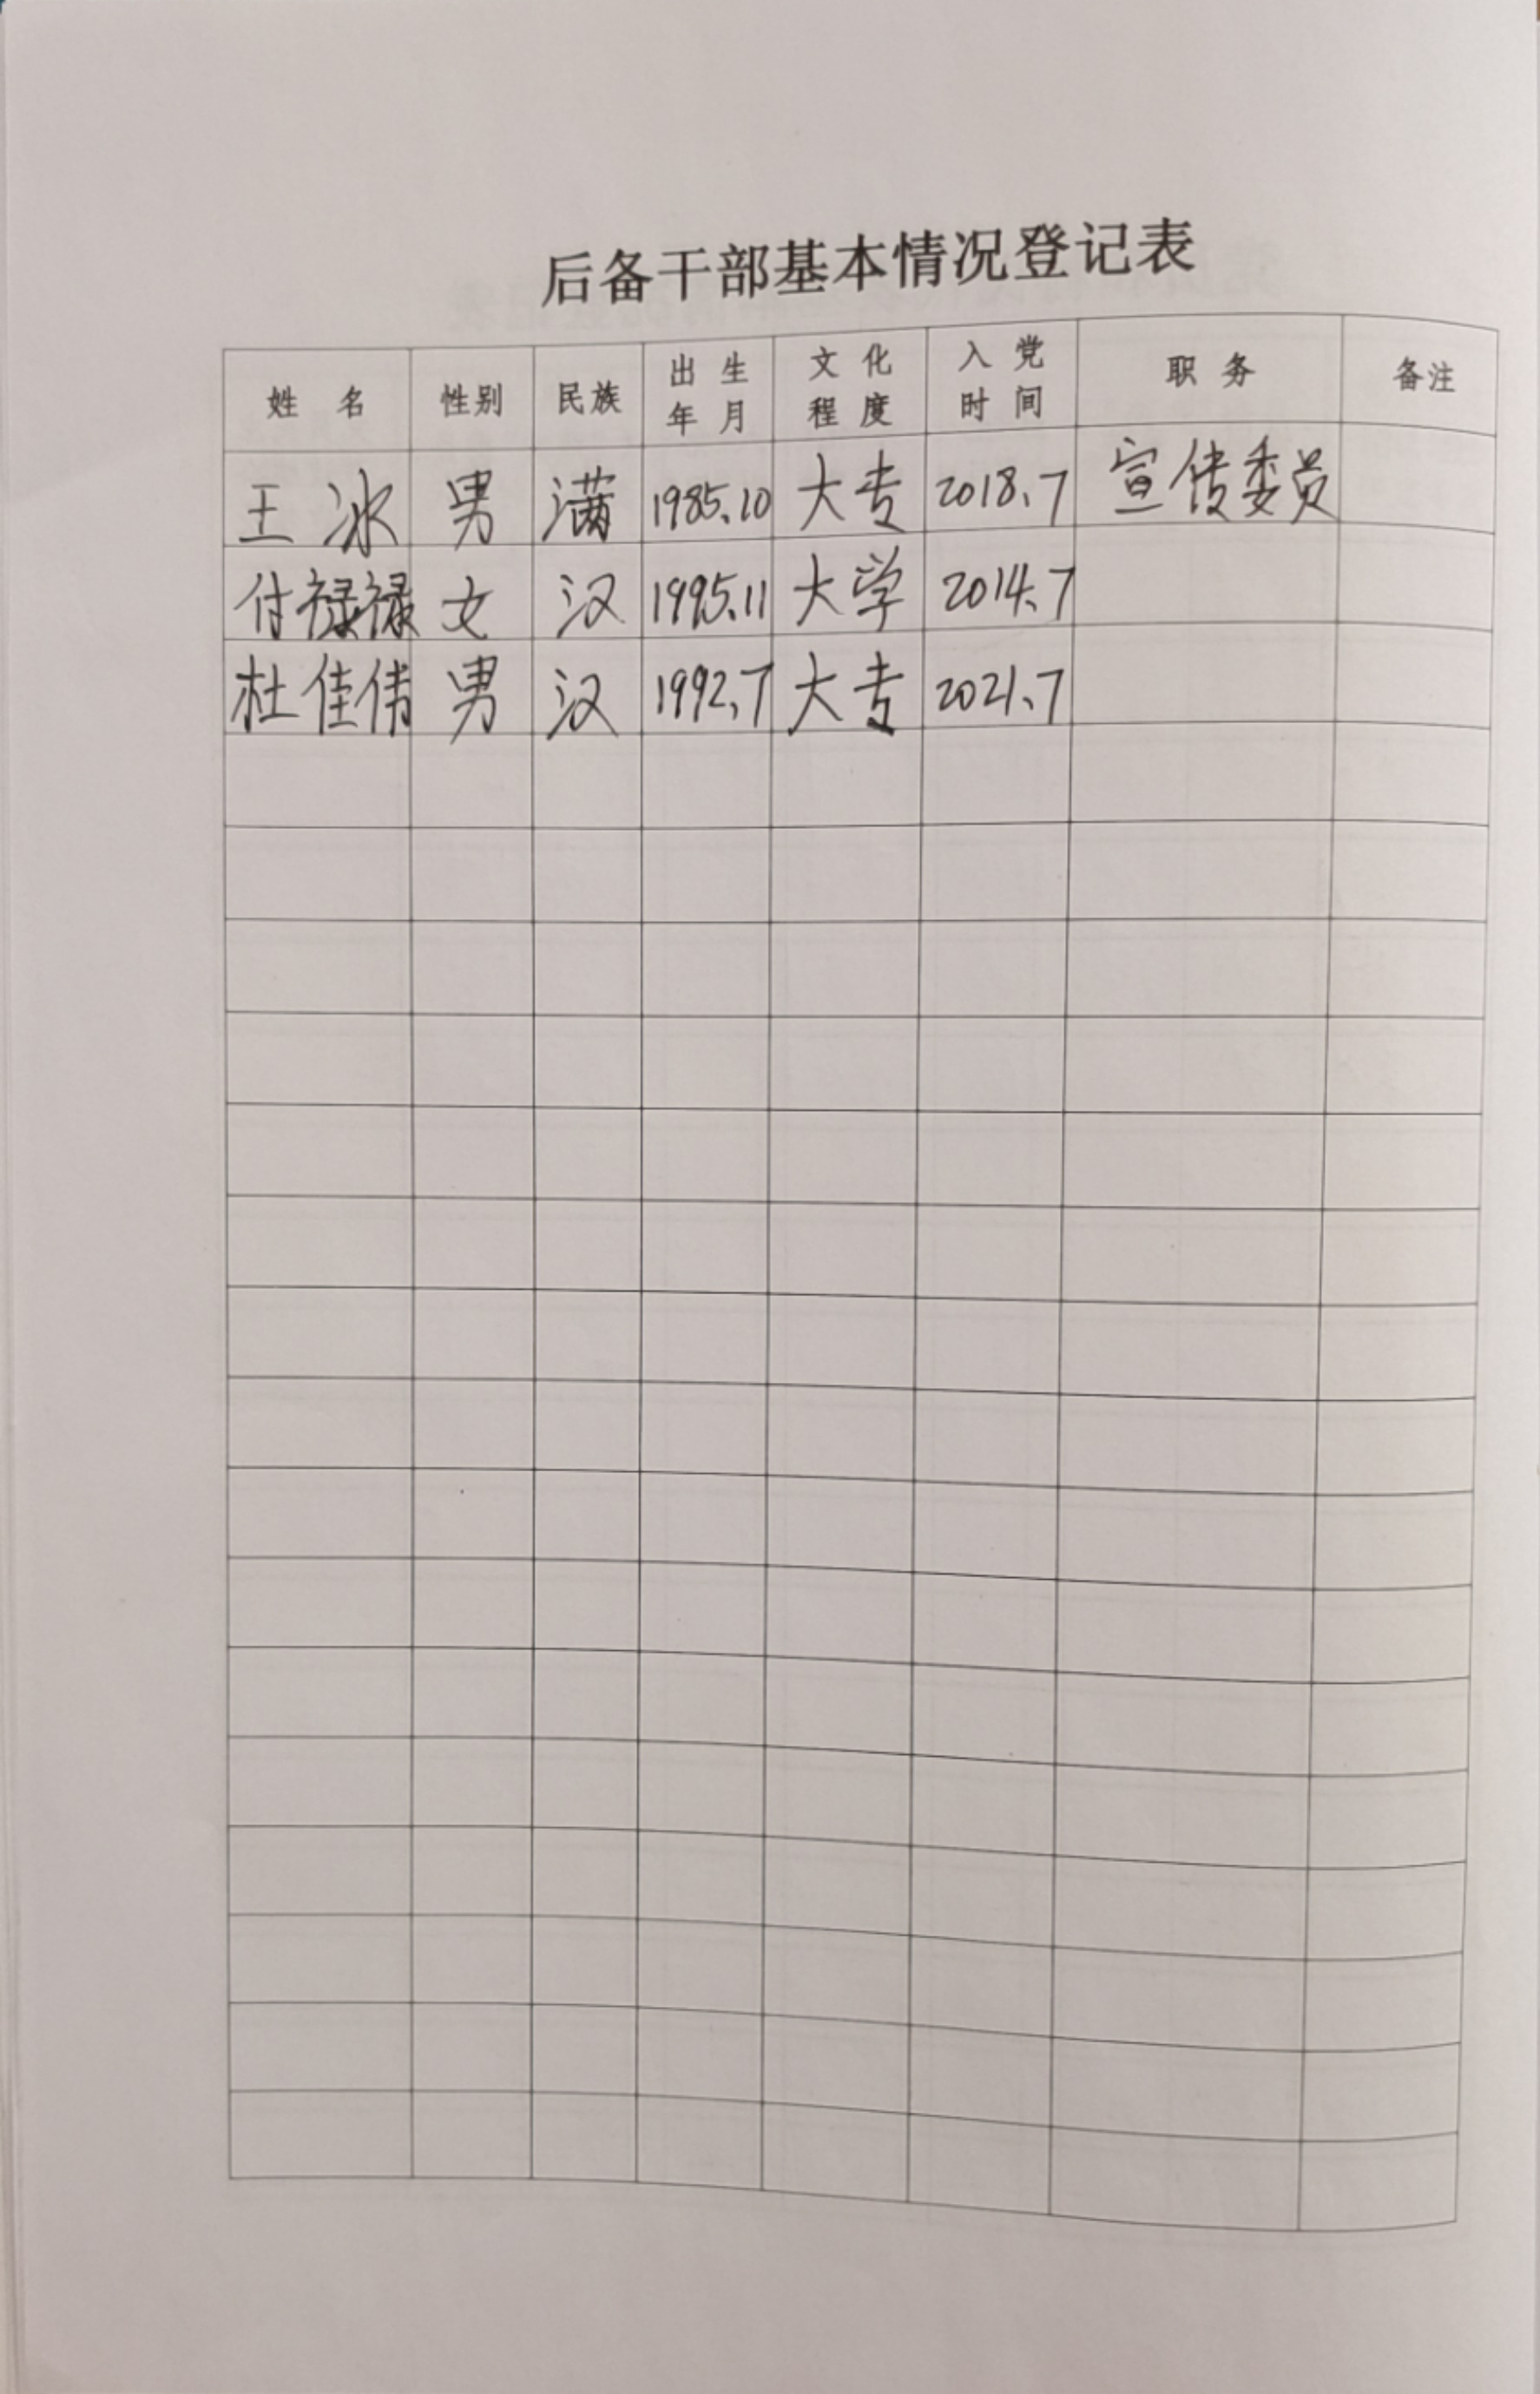 后备干部基本情况登记表
姓 名 性别 民族 出生年月 文化程度 入党时间 职务 备注
王冰 男 满 1985.10 大专 2018.7 宣传委员
付禄禄 女 汉 1995.11 大学 2014.7
杜佳伟 男 汉 1992.7 大专 2021.7